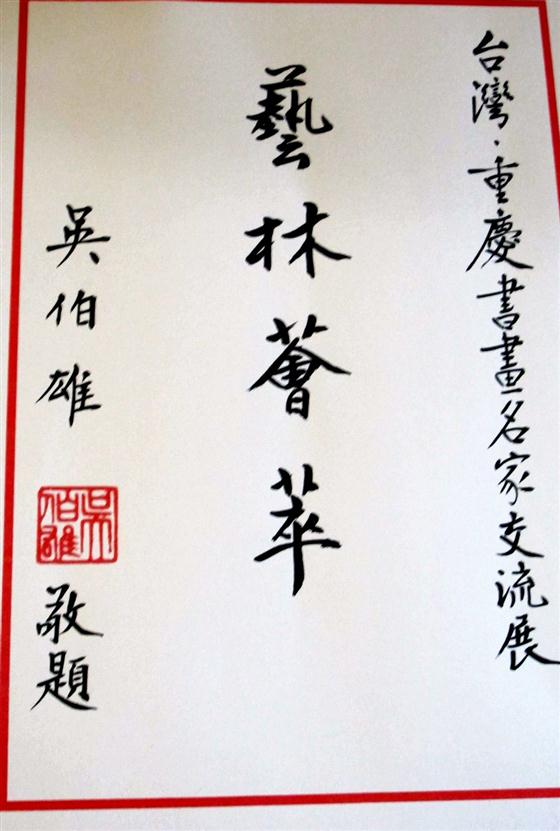 台灣·重慶書畫名家交流展
藝林薈萃
吳伯雄
吳伯雄
敬題